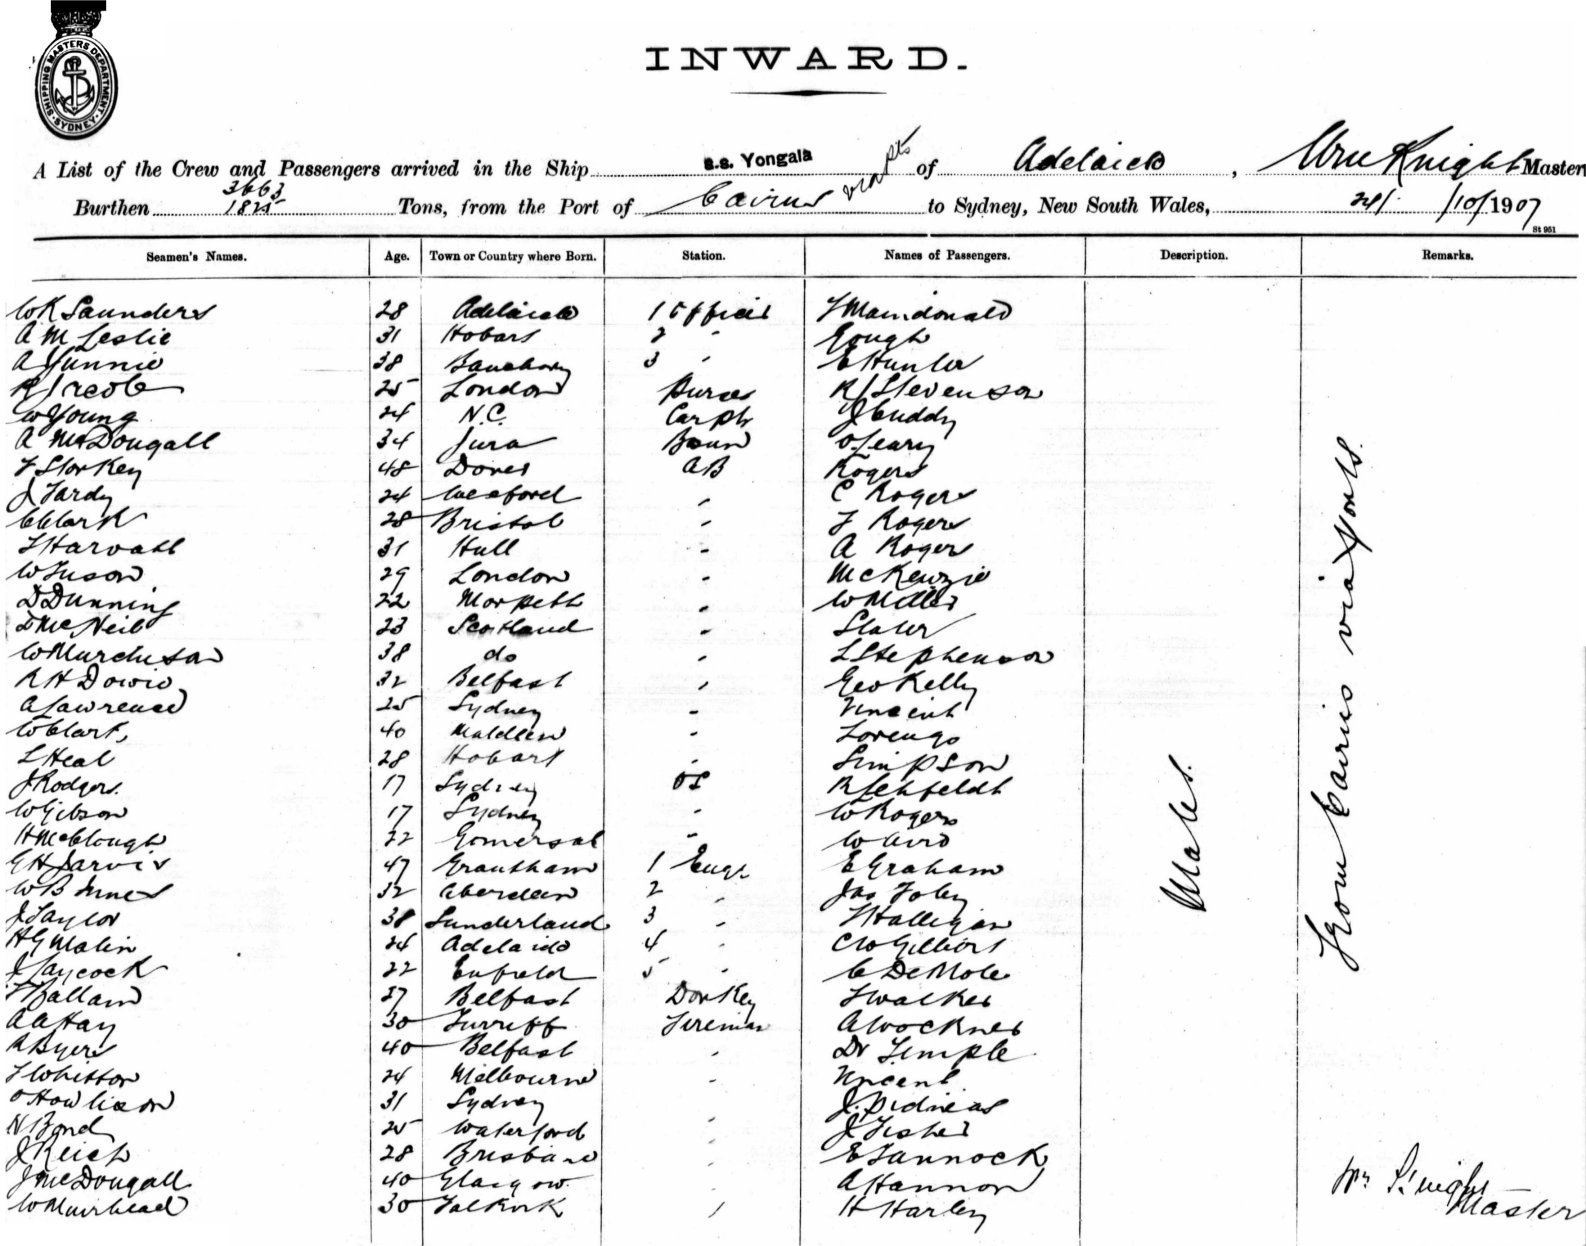 SHIPPING MASTERS DEPARTMENT
SYDNEY
INWARD.
A List of the Crew and Passengers arrived in the Ship s.s. Yongala of Adelaide, Wm Knight Master
Burthen 3663 1825 Tons, from the Port of Cairns via Ports to Sydney, New South Wales, 24/ /10/1907
St 951
Seamen's Names. Age. Town or Country where Born. Station. Names of Passengers. Description. Remarks.
W K Saunders 28 Adelaide 1 Officer
A M Leslie 31 Hobart 2 " Gough
38 3 " E Hunter
25 London Purser R J Stevenson
W Young 24 N.C. Carptr J Cuddy
A McDougall 34 Jura Bosun O Leary
F Storkey 48 Dover AB Rogers
J Tardy 24 Wexford " C Rogers
C Clark 28 Bristol " F Rogers
31 Hull " A Rogers
W Tuson 29 London " McKenzie
D Dunning 22 Morpeth " W Miller
D McNeil 23 Scotland " Slater
W Murchison 38 do " L Stephenson
R H Dowie 32 Belfast " Geo Kelly
A Lawrence 25 Sydney " Vincent
W Clark 40 "
L Heal 28 Hobart " Simpson
J Rodgers 17 Sydney OS R Lehfeldt
W Gibson 17 Sydney " W Rogers
H McClough 22 Gomersal "
G H Jarvis 47 Grantham 1 Engr E Graham
W B Innes 32 Aberdeen 2 " Jas Foley
J Taylor 38 Sunderland 3 " T Halligan
H G Malin 24 Adelaide 4 " C W Gilbert
J Laycock 22 Enfield 5 " C De Mole
27 Belfast Donkey T Walker
A A Hay 30 Turriff Fireman A Wockner
R Byers 40 Belfast " Dr Temple
T Whitton 24 Melbourne " Vincent
31 Sydney
N Bond 25 Waterford " J Fisher
J Reich 28 Brisbane " E Tannock
J McDougall 40 Glasgow " A Hannon
W Muirhead 30 Falkirk " H Harley
Males.
From Cairns via Ports.
Wm Knight
Master